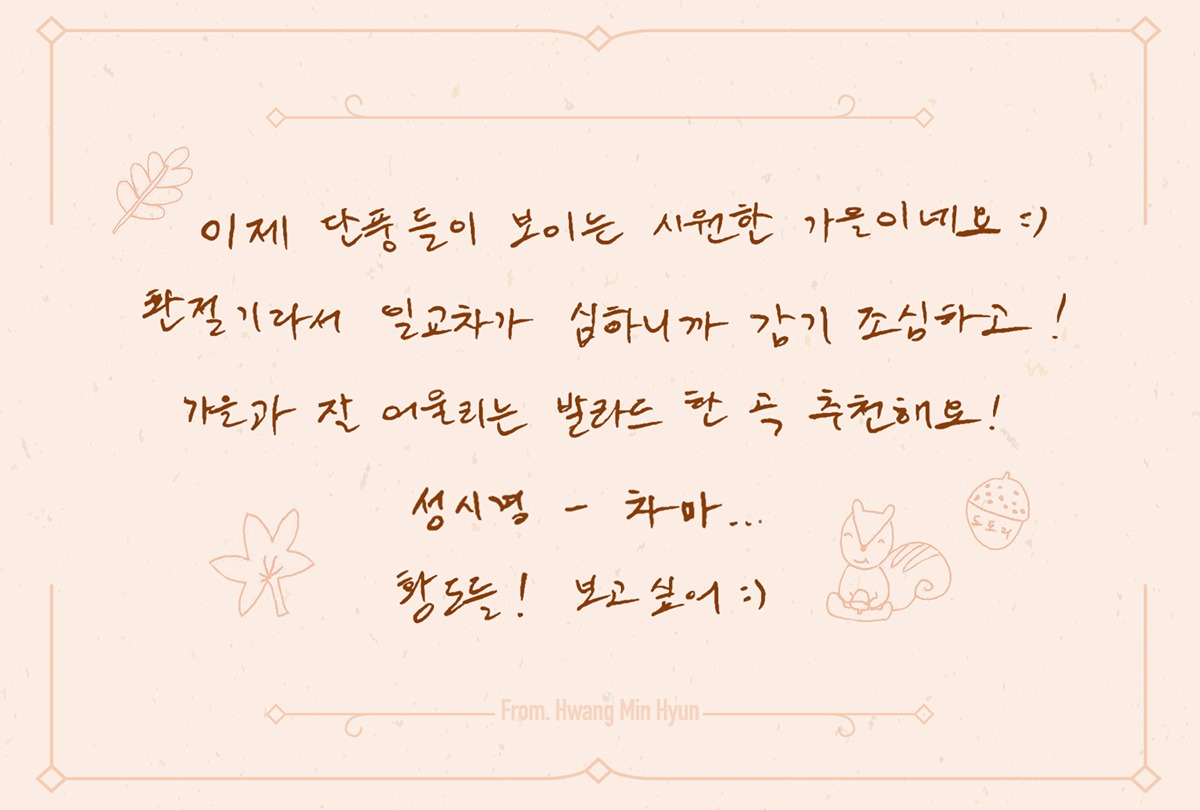 이제 단풍들이 보이는 시원한 가을이네요 :)
환절기라서 일교차가 심하니까 감기 조심하고!
가을과 잘 어울리는 발라드 한 곡 추천해요!
성시경 - 차마...
도토리
황도들! 보고싶어 :)
From. Hwang Min Hyun